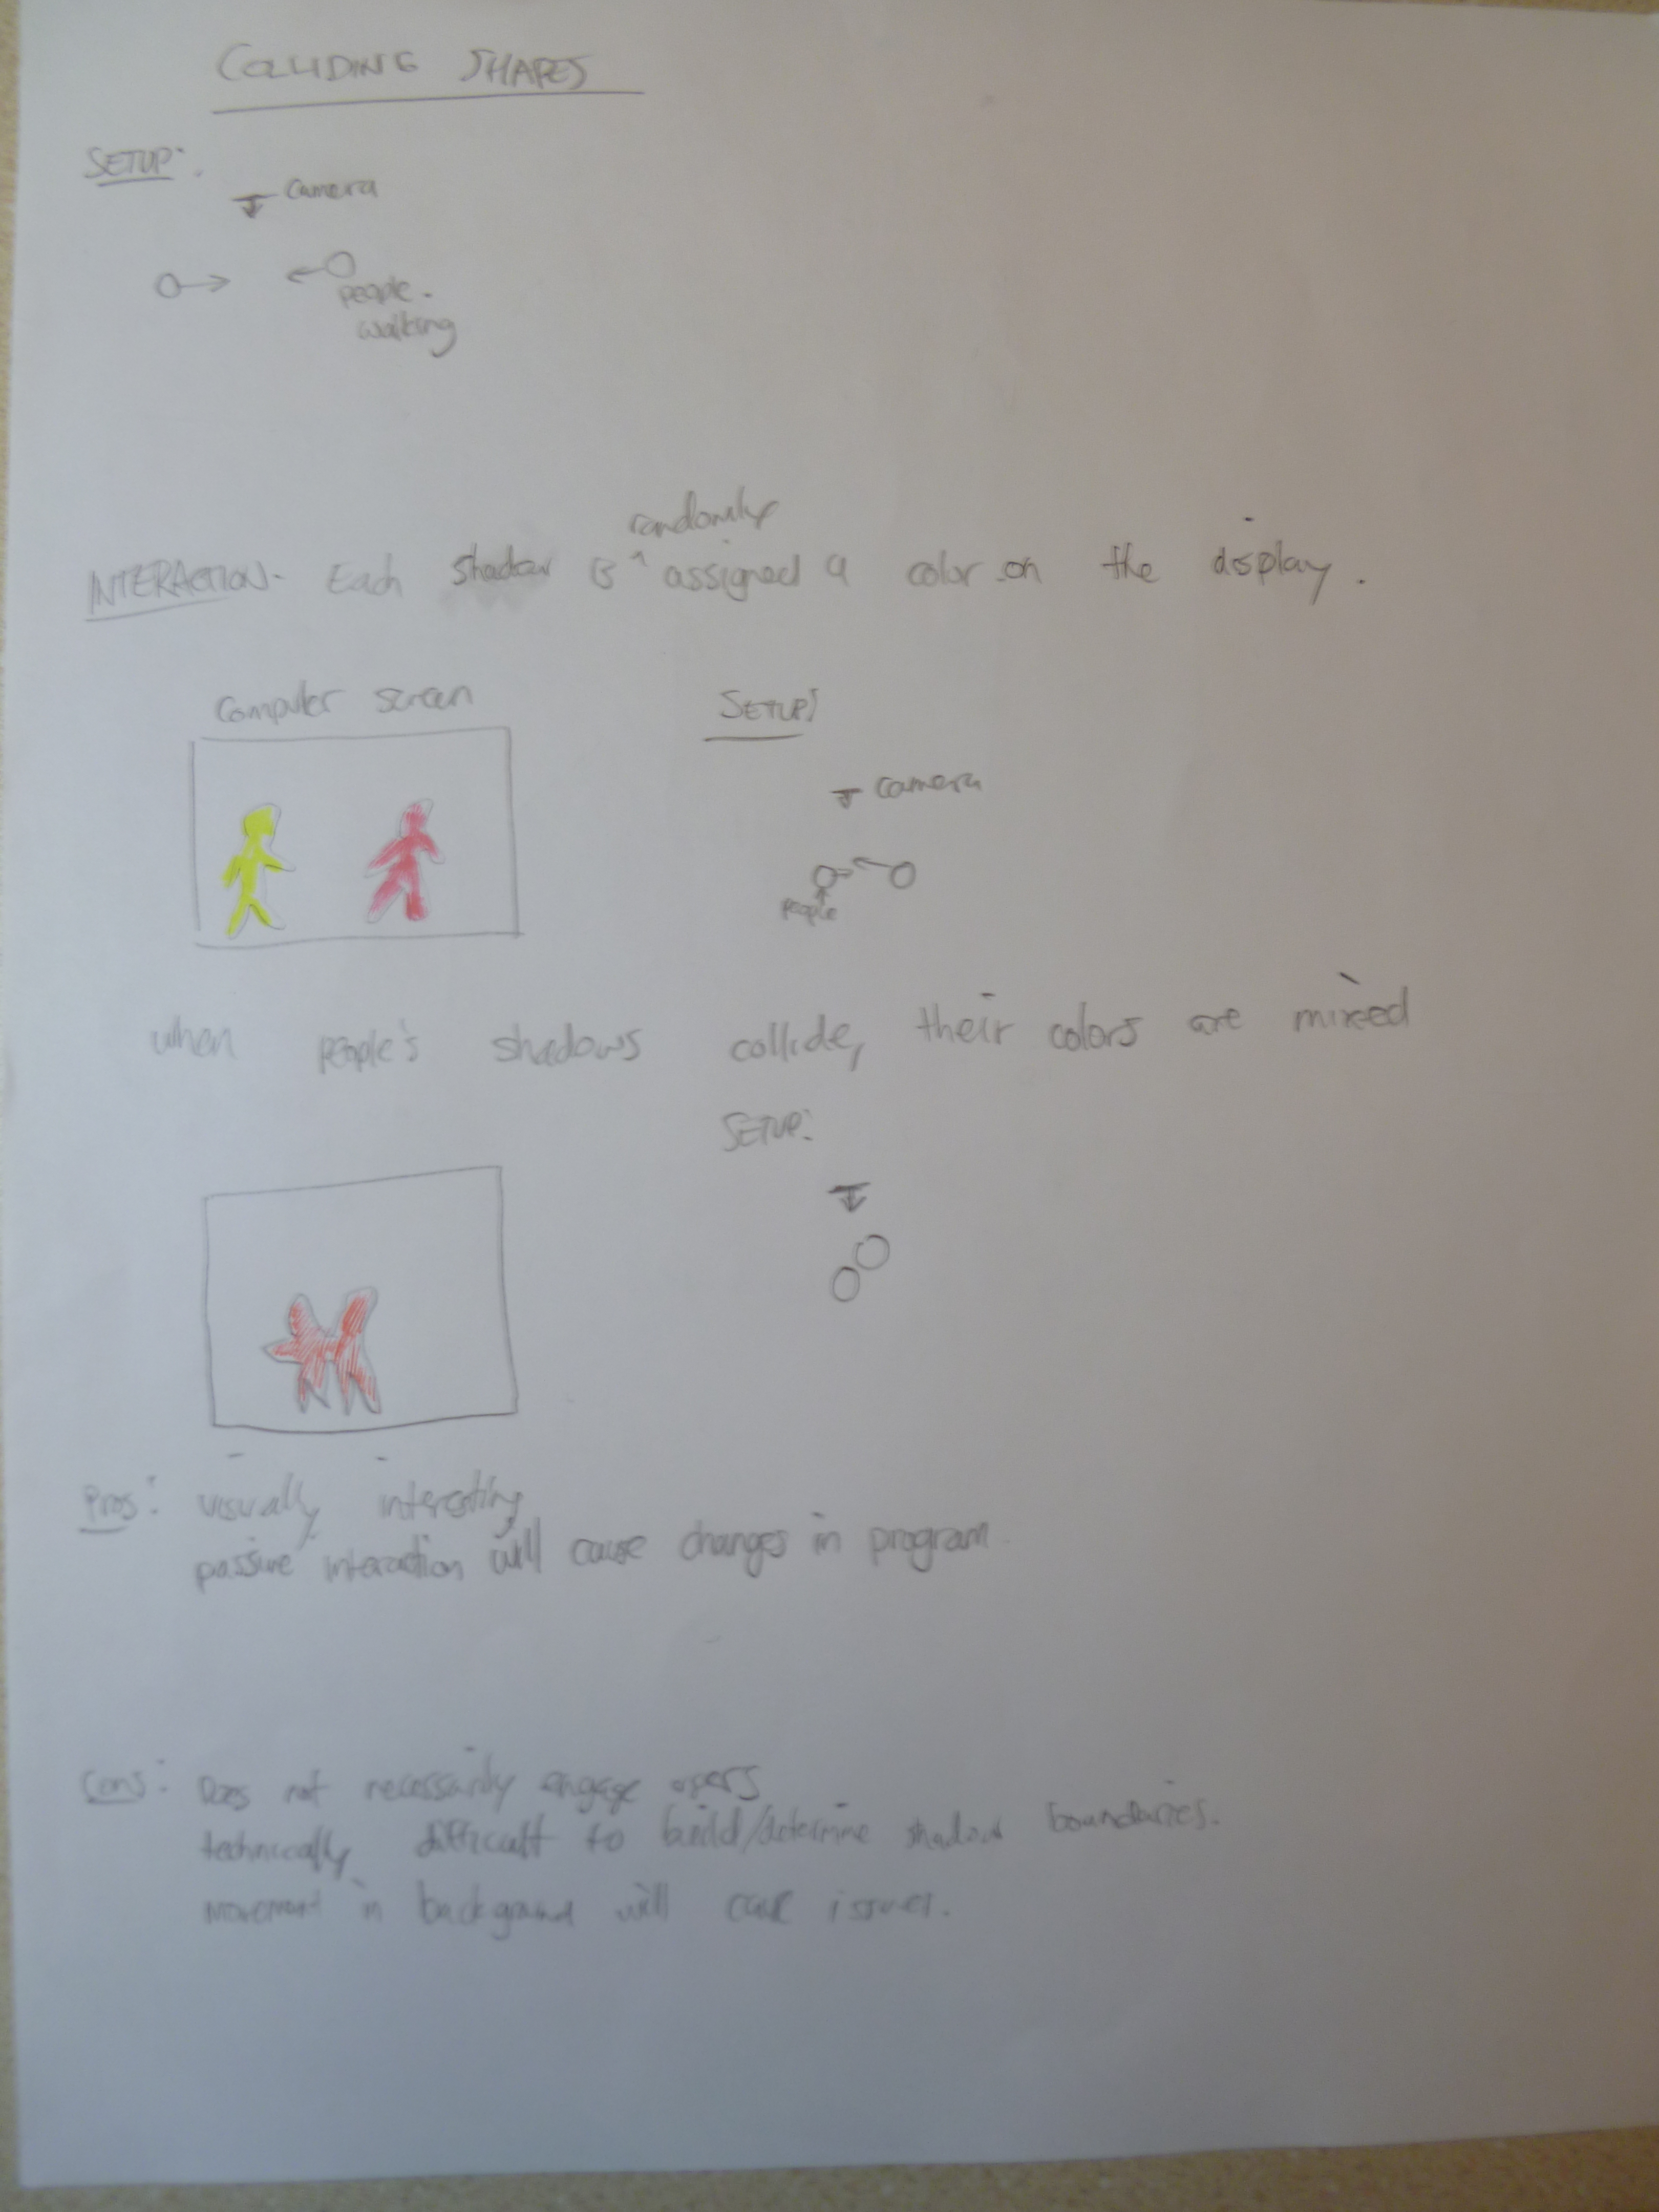 COLLIDING SHAPES
SETUP:
camera
people.
walking
randomly
INTERACTION- Each shadow is ^ assigned a color on the display.
Computer screen
SETUP:
camera
people
when people's shadows collide, their colors are mixed
SETUP:
Pros: visually interesting
passive interaction will cause changes in program.
Cons: Does not necessarily engage users
technically difficult to build/determine shadow boundaries.
movement in background will cause issues.